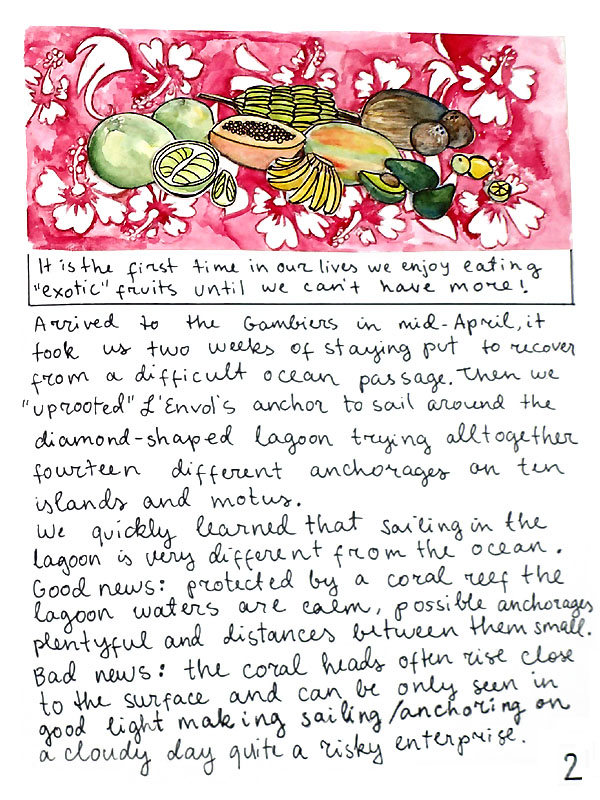 It is the first time in our lives we enjoy eating
"exotic" fruits until we can't have more!
Arrived to the Gambiers in mid-April, it
took us two weeks of staying put to recover
from a difficult ocean passage. Then we
"uprooted" L'Envol's anchor to sail around the
diamond-shaped lagoon trying alltogether
fourteen different anchorages on ten
islands and motus.
We quickly learned that sailing in the
lagoon is very different from the ocean.
Good news: protected by a coral reef the
lagoon waters are calm, possible anchorages
plentyful and distances between them small.
Bad news: the coral heads often rise close
to the surface and can be only seen in
good light making sailing/anchoring on
a cloudy day quite a risky enterprise.
2